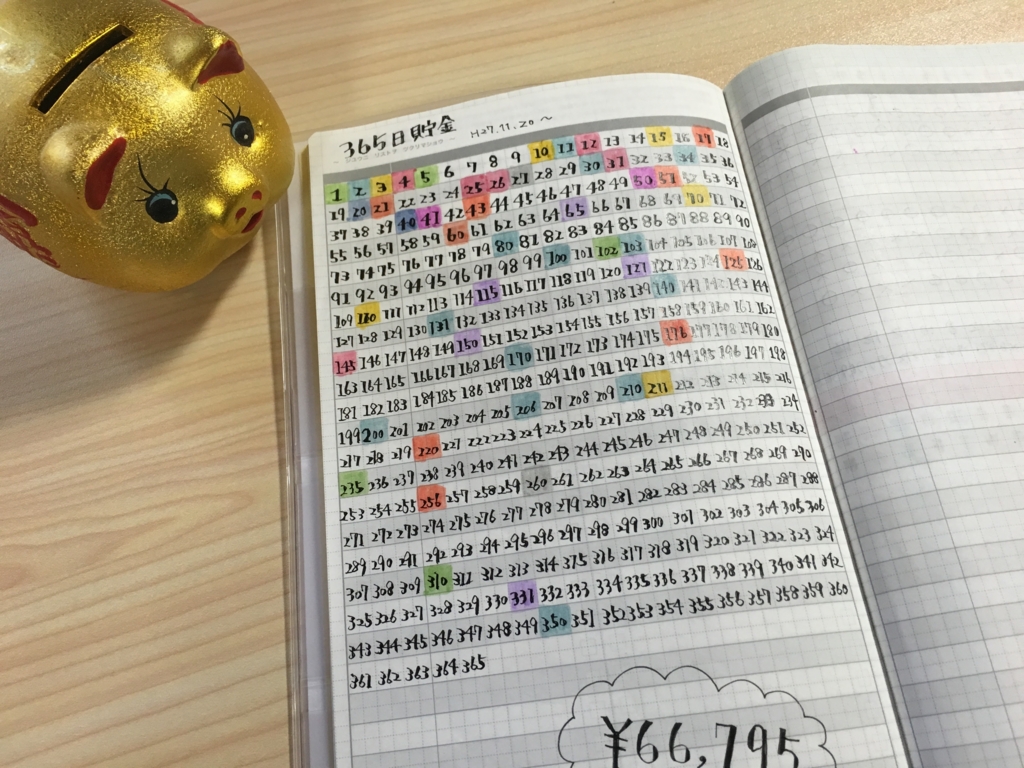 365日貯金 H27.11.20～
1 2 3 4 5 6 7 8 9 10 11 12 13 14 15 16 17 18
19 20 21 22 23 24 25 26 27 28 29 30 31 32 33 34 35 36
37 38 39 40 41 42 43 44 45 46 47 48 49 50 51 52 53 54
55 56 57 58 59 60 61 62 63 64 65 66 67 68 69 70 71 72
73 74 75 76 77 78 79 80 81 82 83 84 85 86 87 88 89 90
91 92 93 94 95 96 97 98 99 100 101 102 103 104 105 106 107 108
109 110 111 112 113 114 115 116 117 118 119 120 121 122 123 124 125 126
127 128 129 130 131 132 133 134 135 136 137 138 139 140 141 142 143 144
145 146 147 148 149 150 151 152 153 154 155 156 157 158 159 160 161 162
163 164 165 166 167 168 169 170 171 172 173 174 175 176 177 178 179 180
181 182 183 184 185 186 187 188 189 190 191 192 193 194 195 196 197 198
199 200 201 202 203 204 205 206 207 208 209 210 211 212 213 214 215 216
217 218 219 220 221 222 223 224 225 226 227 228 229 230 231 232 233 234
235 236 237 238 239 240 241 242 243 244 245 246 247 248 249 250 251 252
253 254 255 256 257 258 259 260 261 262 263 264 265 266 267 268 269 270
271 272 273 274 275 276 277 278 279 280 281 282 283 284 285 286 287 288
289 290 291 292 293 294 295 296 297 298 299 300 301 302 303 304 305 306
307 308 309 310 311 312 313 314 315 316 317 318 319 320 321 322 323 324
325 326 327 328 329 330 331 332 333 334 335 336 337 338 339 340 341 342
343 344 345 346 347 348 349 350 351 352 353 354 355 356 357 358 359 360
361 362 363 364 365
¥66,795